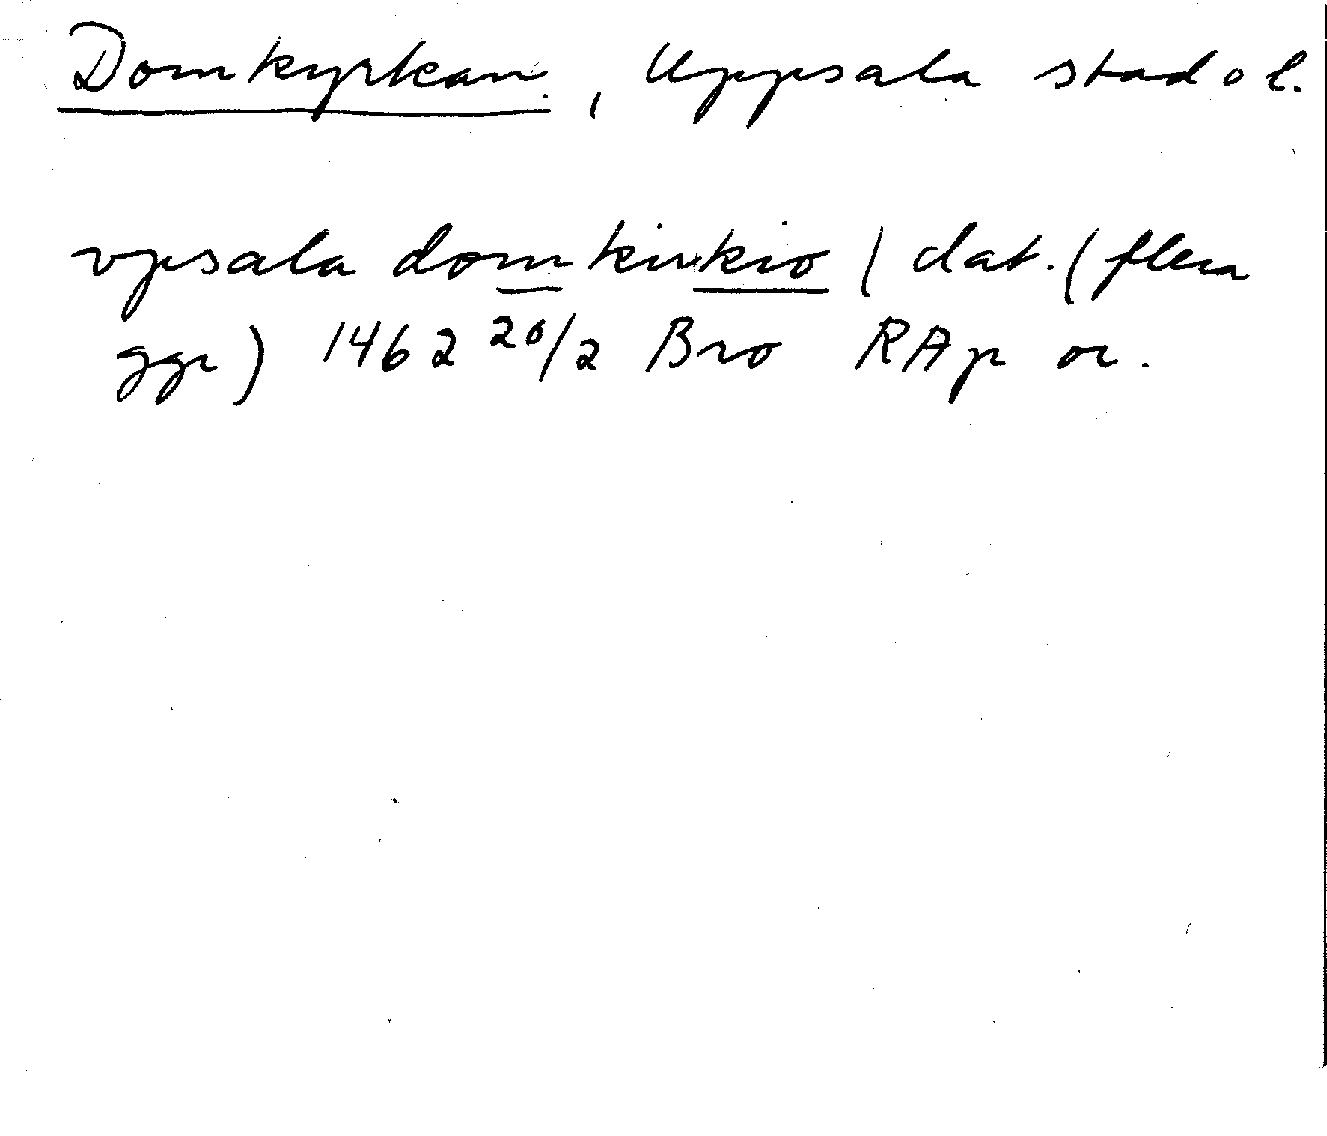 Domkyrkan, Uppsala stad ol.
vpsala domkirkio / dat. (flera
ggr) 1462 20/2 Bro RAp or.